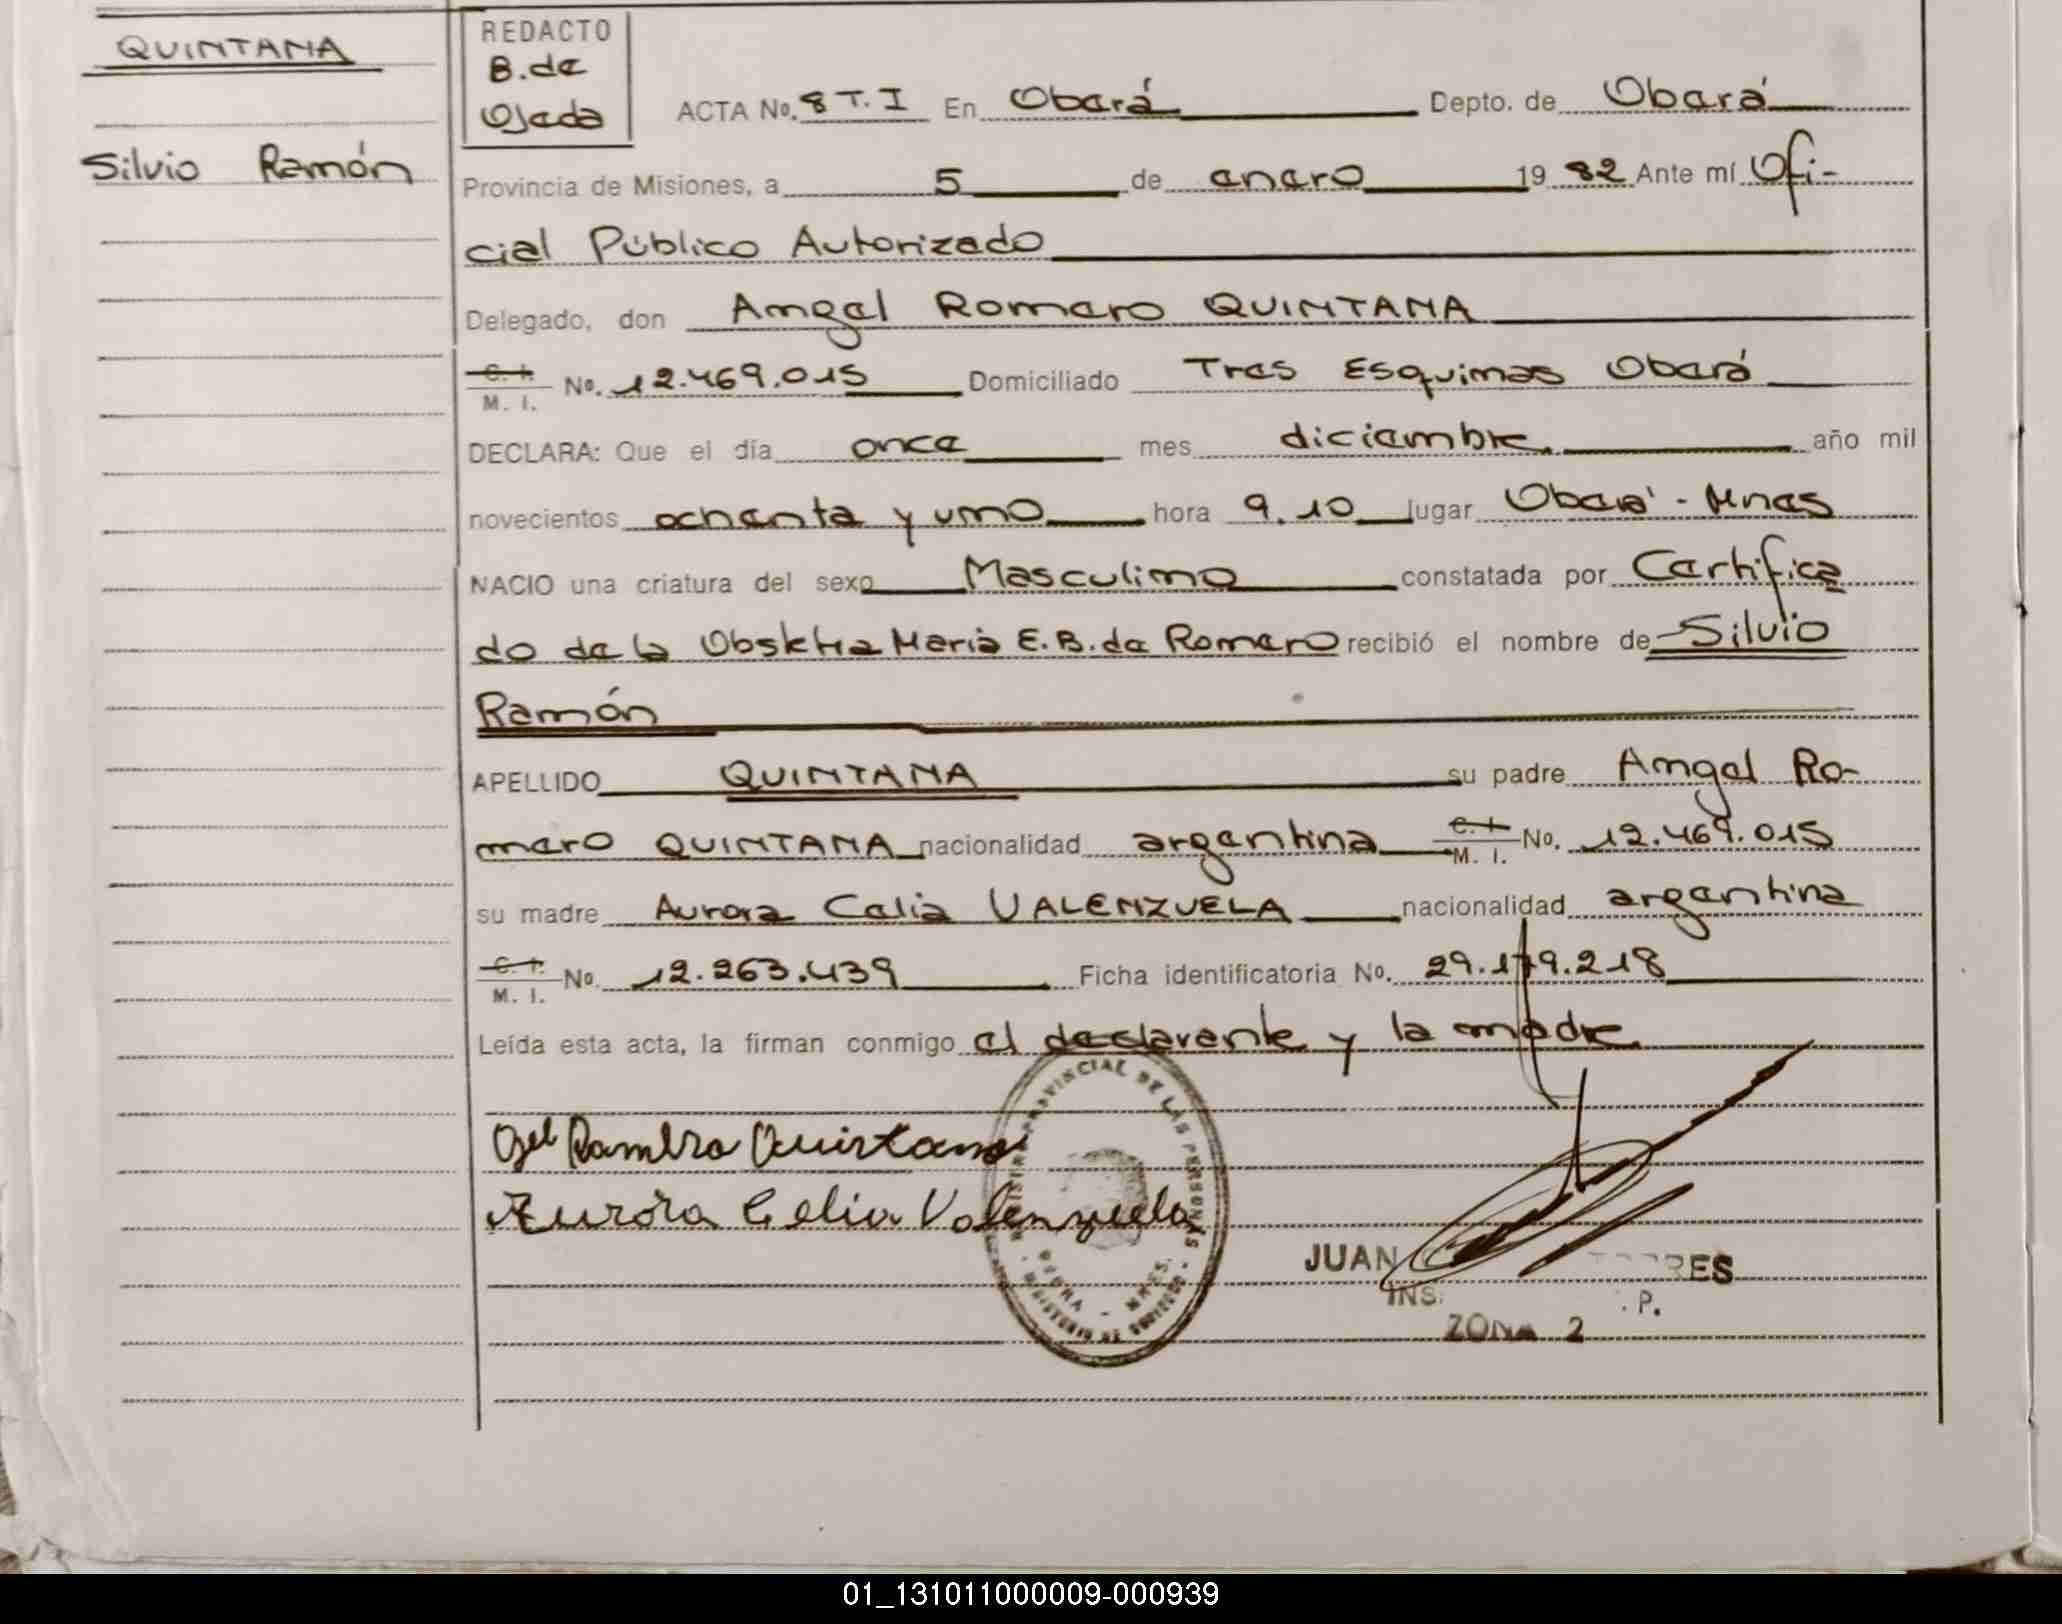 QUINTANA
Silvio Ramón
REDACTO
B. de
Ojeda
ACTA No. 8 T. I En Oberá Depto. de Oberá
Provincia de Misiones, a 5 de enero 19 82 Ante mí Ofi-
cial Público Autorizado
Delegado, don Angel Romero QUINTANA
C. I.
M. I. No. 12.469.015 Domiciliado Tres Esquinas Oberá
DECLARA: Que el día once mes diciembre año mil
novecientos ochenta y uno hora 9.10 lugar Oberá - Mnes
NACIO una criatura del sexo Masculino constatada por Certifica
do de la Obstetra María E. B. de Romero recibió el nombre de Silvio
Ramón
APELLIDO QUINTANA su padre Angel Ro-
mero QUINTANA nacionalidad argentina C. I.
M. I. No. 12.469.015
su madre Aurora Celia VALENZUELA nacionalidad argentina
C. I.
M. I. No. 12.263.439 Ficha identificatoria No. 29.179.218
Leída esta acta, la firman conmigo el declarante y la madre
Quintana
Aurora Celia Valenzuela
PROVINCIAL DE LAS PERSONAS
OBERA - MNES.
JUAN
INS. P.
ZONA 2
01_131011000009-000939